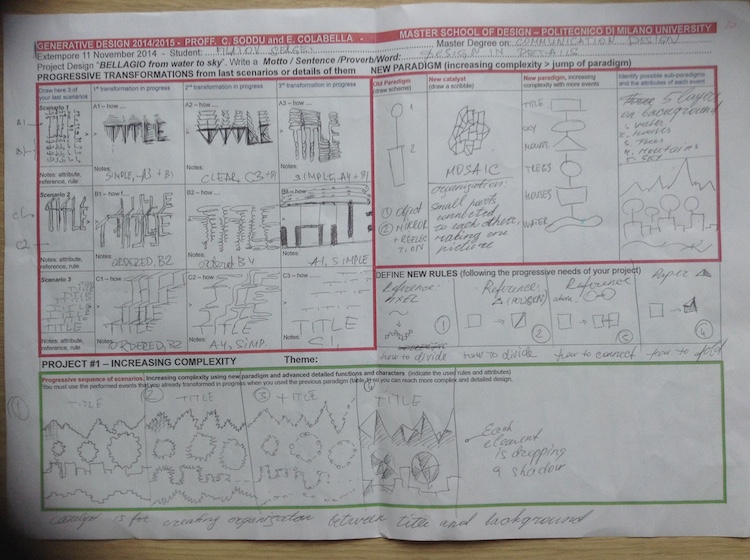 GENERATIVE DESIGN 2014/2015 - PROFF. C. SODDU and E. COLABELLA -
MASTER SCHOOL OF DESIGN – POLITECNICO DI MILANO UNIVERSITY
Extempore 11 November 2014 - Student:
Master Degree on COMMUNICATION DESIGN
Project Design "BELLAGIO from water to sky". Write a Motto / Sentence /Proverb/Word: DESIGN IN DETAILS
PROGRESSIVE TRANSFORMATIONS from last scenarios or details of them
NEW PARADIGM (increasing complexity > jump of paradigm)
Draw here 3 of your last scenarios
1st transformation in progress
2nd transformation in progress
3rd transformation in progress
Scenario 1
A1 – how ....
A2 – how ....
A3 – how ....
Notes: attribute, reference, rule
Notes:
SIMPLE, A3 + B1
Notes:
CLEAR, C3 + B1
Notes:
SIMPLE, A4 + B1
Scenario 2
B1 – how
B2 – how ....
C1
C2
TITLE
Notes: attribute, reference, rule
ORDERED, B2
ORDERED, B4
A1, SIMPLE
Scenario 3
C1 – how ....
C2 – how ....
C3 – how ....
TITLE
TITLE
TITLE
TITLE
Notes: attribute, reference, rule
ORDERED, B2
A4, SIMP.
Old Paradigm
(draw scheme)
1
2
① Object
② MIRROR
+ REFLEC
TION
New catalyst
(draw a scribble)
MOSAIC
organization:
small parts
connected
to each other,
making one
picture
New paradigm, increasing complexity with more events
TITLE
SKY
MOUNT.
TREES
HOUSES
WATER
Identify possible sub-paradigms and the attributes of each event
5 layers
on background
1. water
2. houses
3. Trees
4. Mountains
5. SKY
DEFINE NEW RULES (following the progressive needs of your project)
Reference:
①
how to divide
Reference:
②
how to divide
Reference
③
how to connect
Paper
④
how to fold
PROJECT #1 – INCREASING COMPLEXITY
Theme:
Progressive sequence of scenarios. Increasing complexity using new paradigm and advanced detailed functions and characters (indicate the used rules and attributes)
You must use the performed events that you already transformed in progress when you used the previous paradigm (table 1) so you can reach more complex and detailed design.
① TITLE
② TITLE
③ TITLE
④ TITLE
Each
element
is dropping
a shadow
Catalyst is for creating organization between title and background